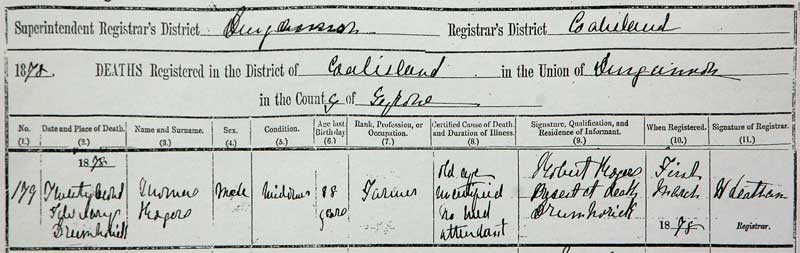 Superintendent Registrar's District Dungannon Registrar's District Coalisland
1878. DEATHS Registered in the District of Coalisland in the Union of Dungannon
in the County of Tyrone
No. Date and Place of Death. Name and Surname. Sex. Condition. Age last Birthday Rank, Profession, or Occupation. Certified Cause of Death, and Duration of Illness. Signature, Qualification, and Residence of Informant. When Registered. Signature of Registrar.
(1.) (2.) (3.) (4.) (5.) (6.) (7.) (8.) (9.) (10.) (11.)
179
1878.
February
Drumhorick
Thomas
Rogers
Male
Widower
88
years
Farmer
old age
uncertified
no med
attendant
Robert Rogers
Present at death
Drumhorick
First
March
1878
Registrar.